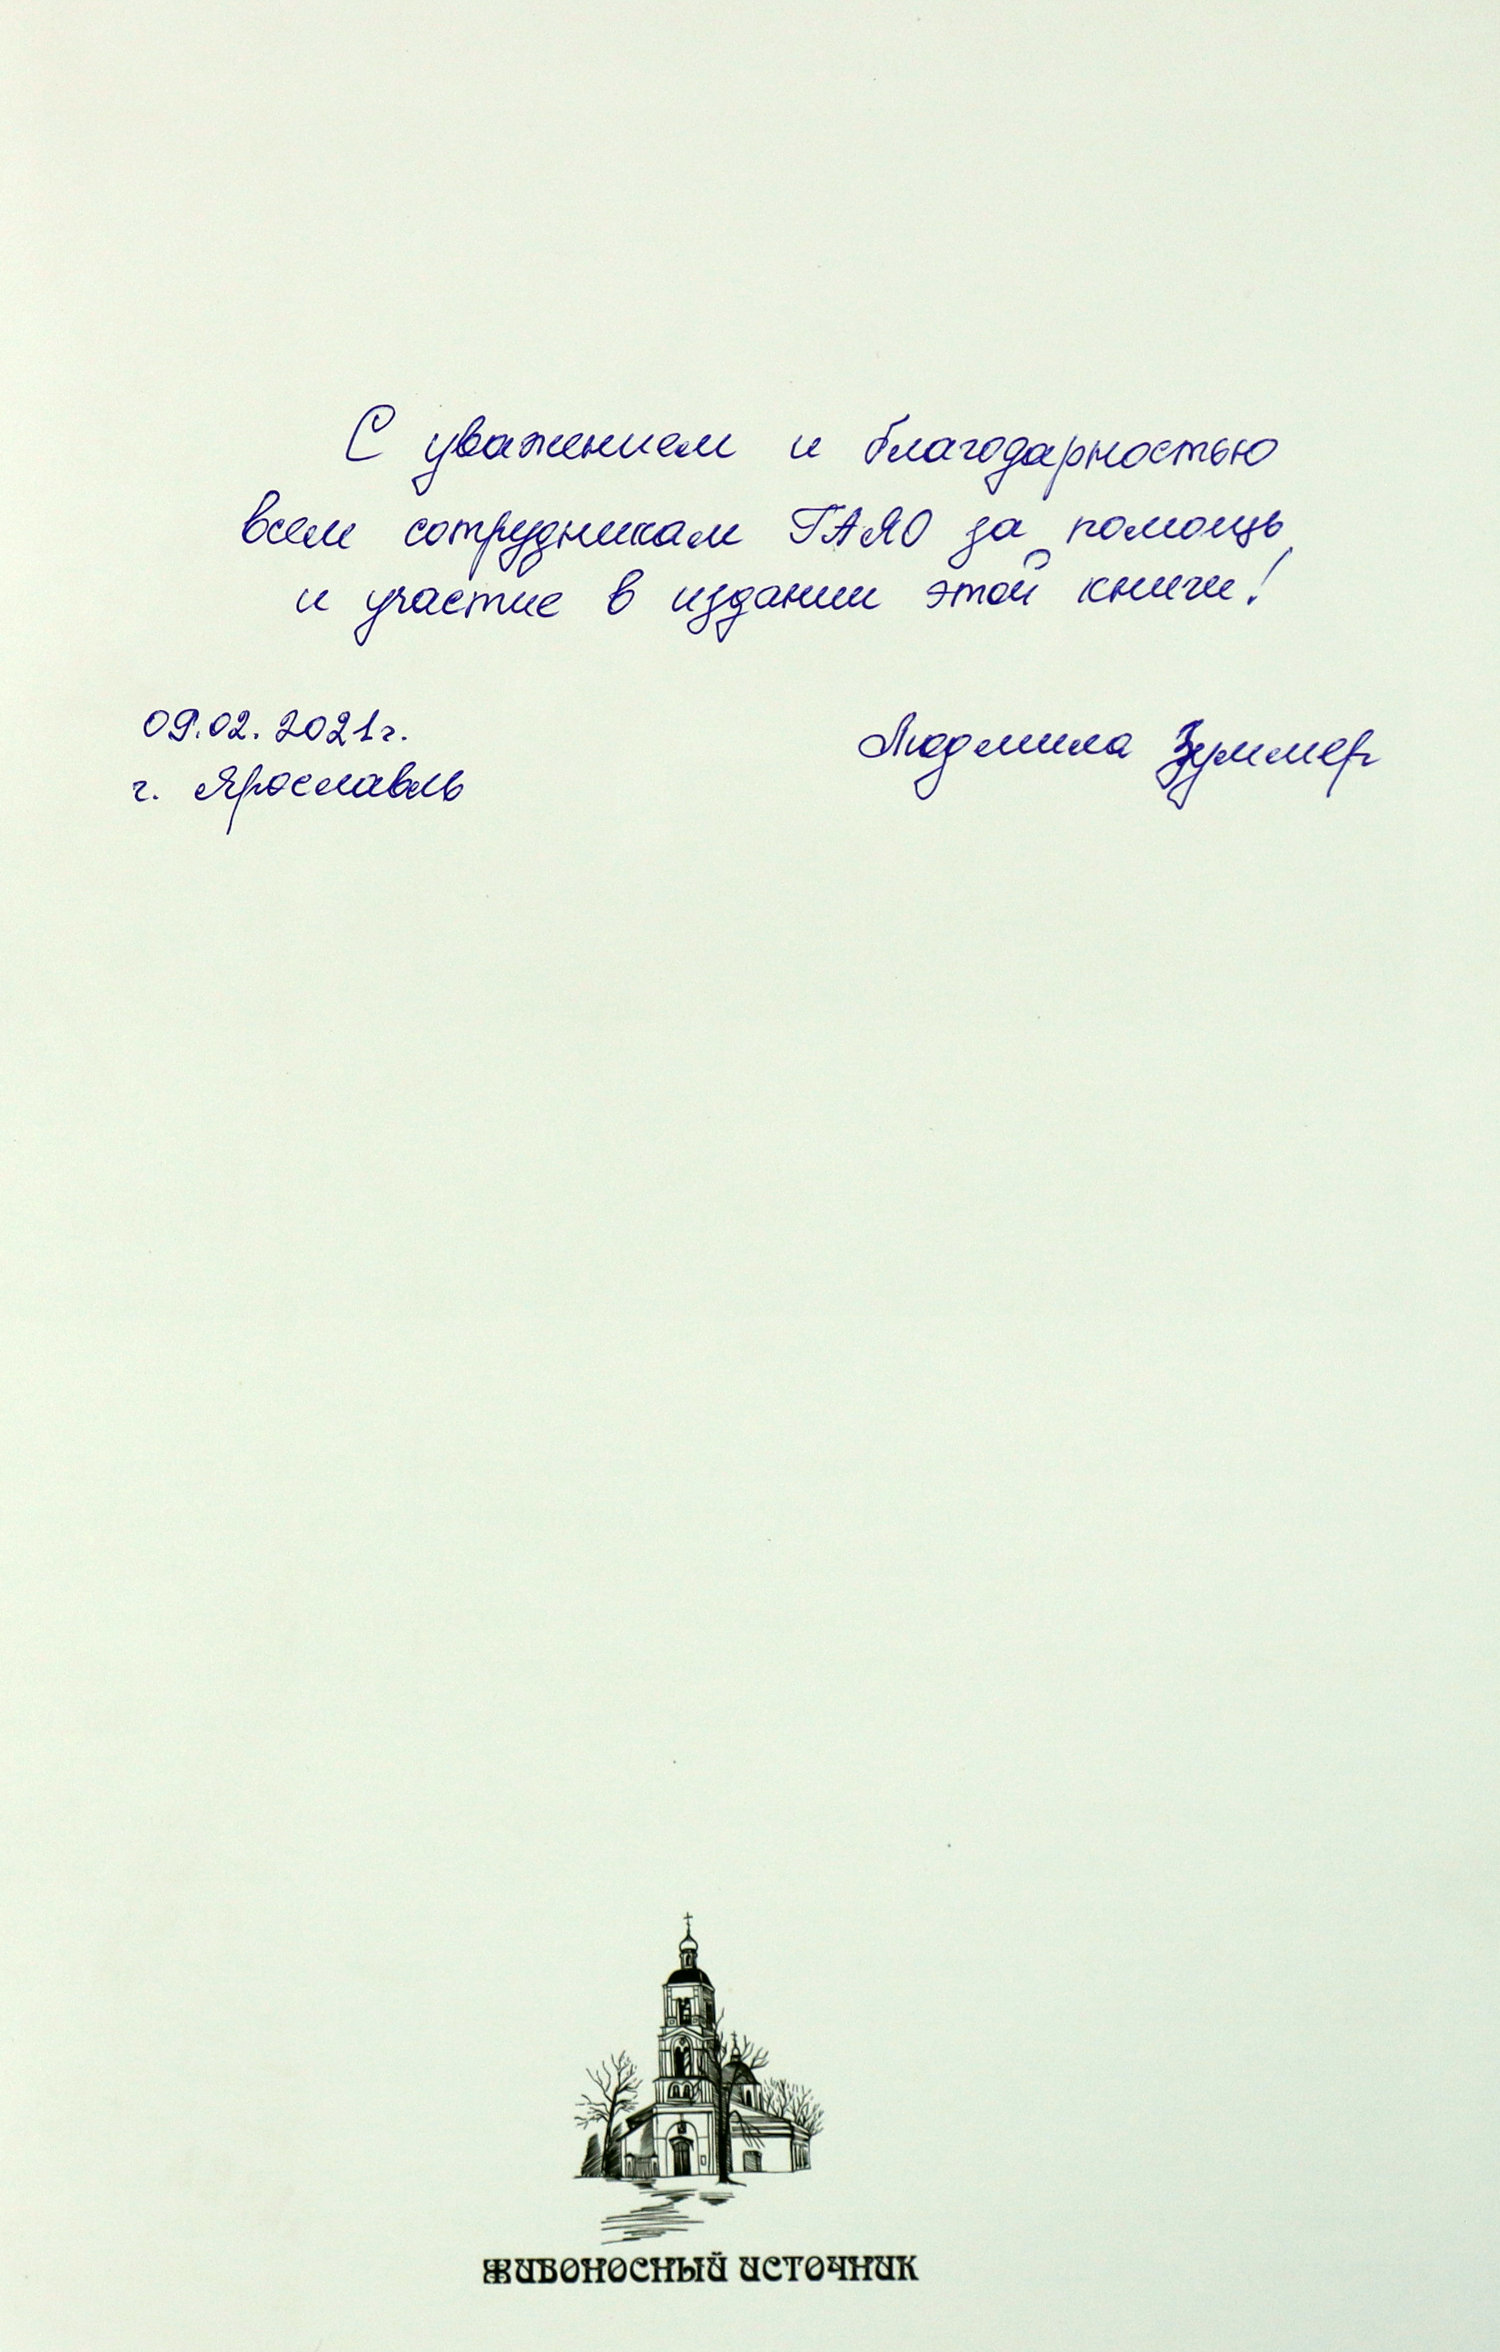 С уважением и благодарностью
всем сотрудникам ГАЯО за помощь
и участие в издании этой книги!
09.02.2021г.
г. Ярославль
Людмила Зуммер
ЖИВОНОСНЫЙ ИСТОЧНИК